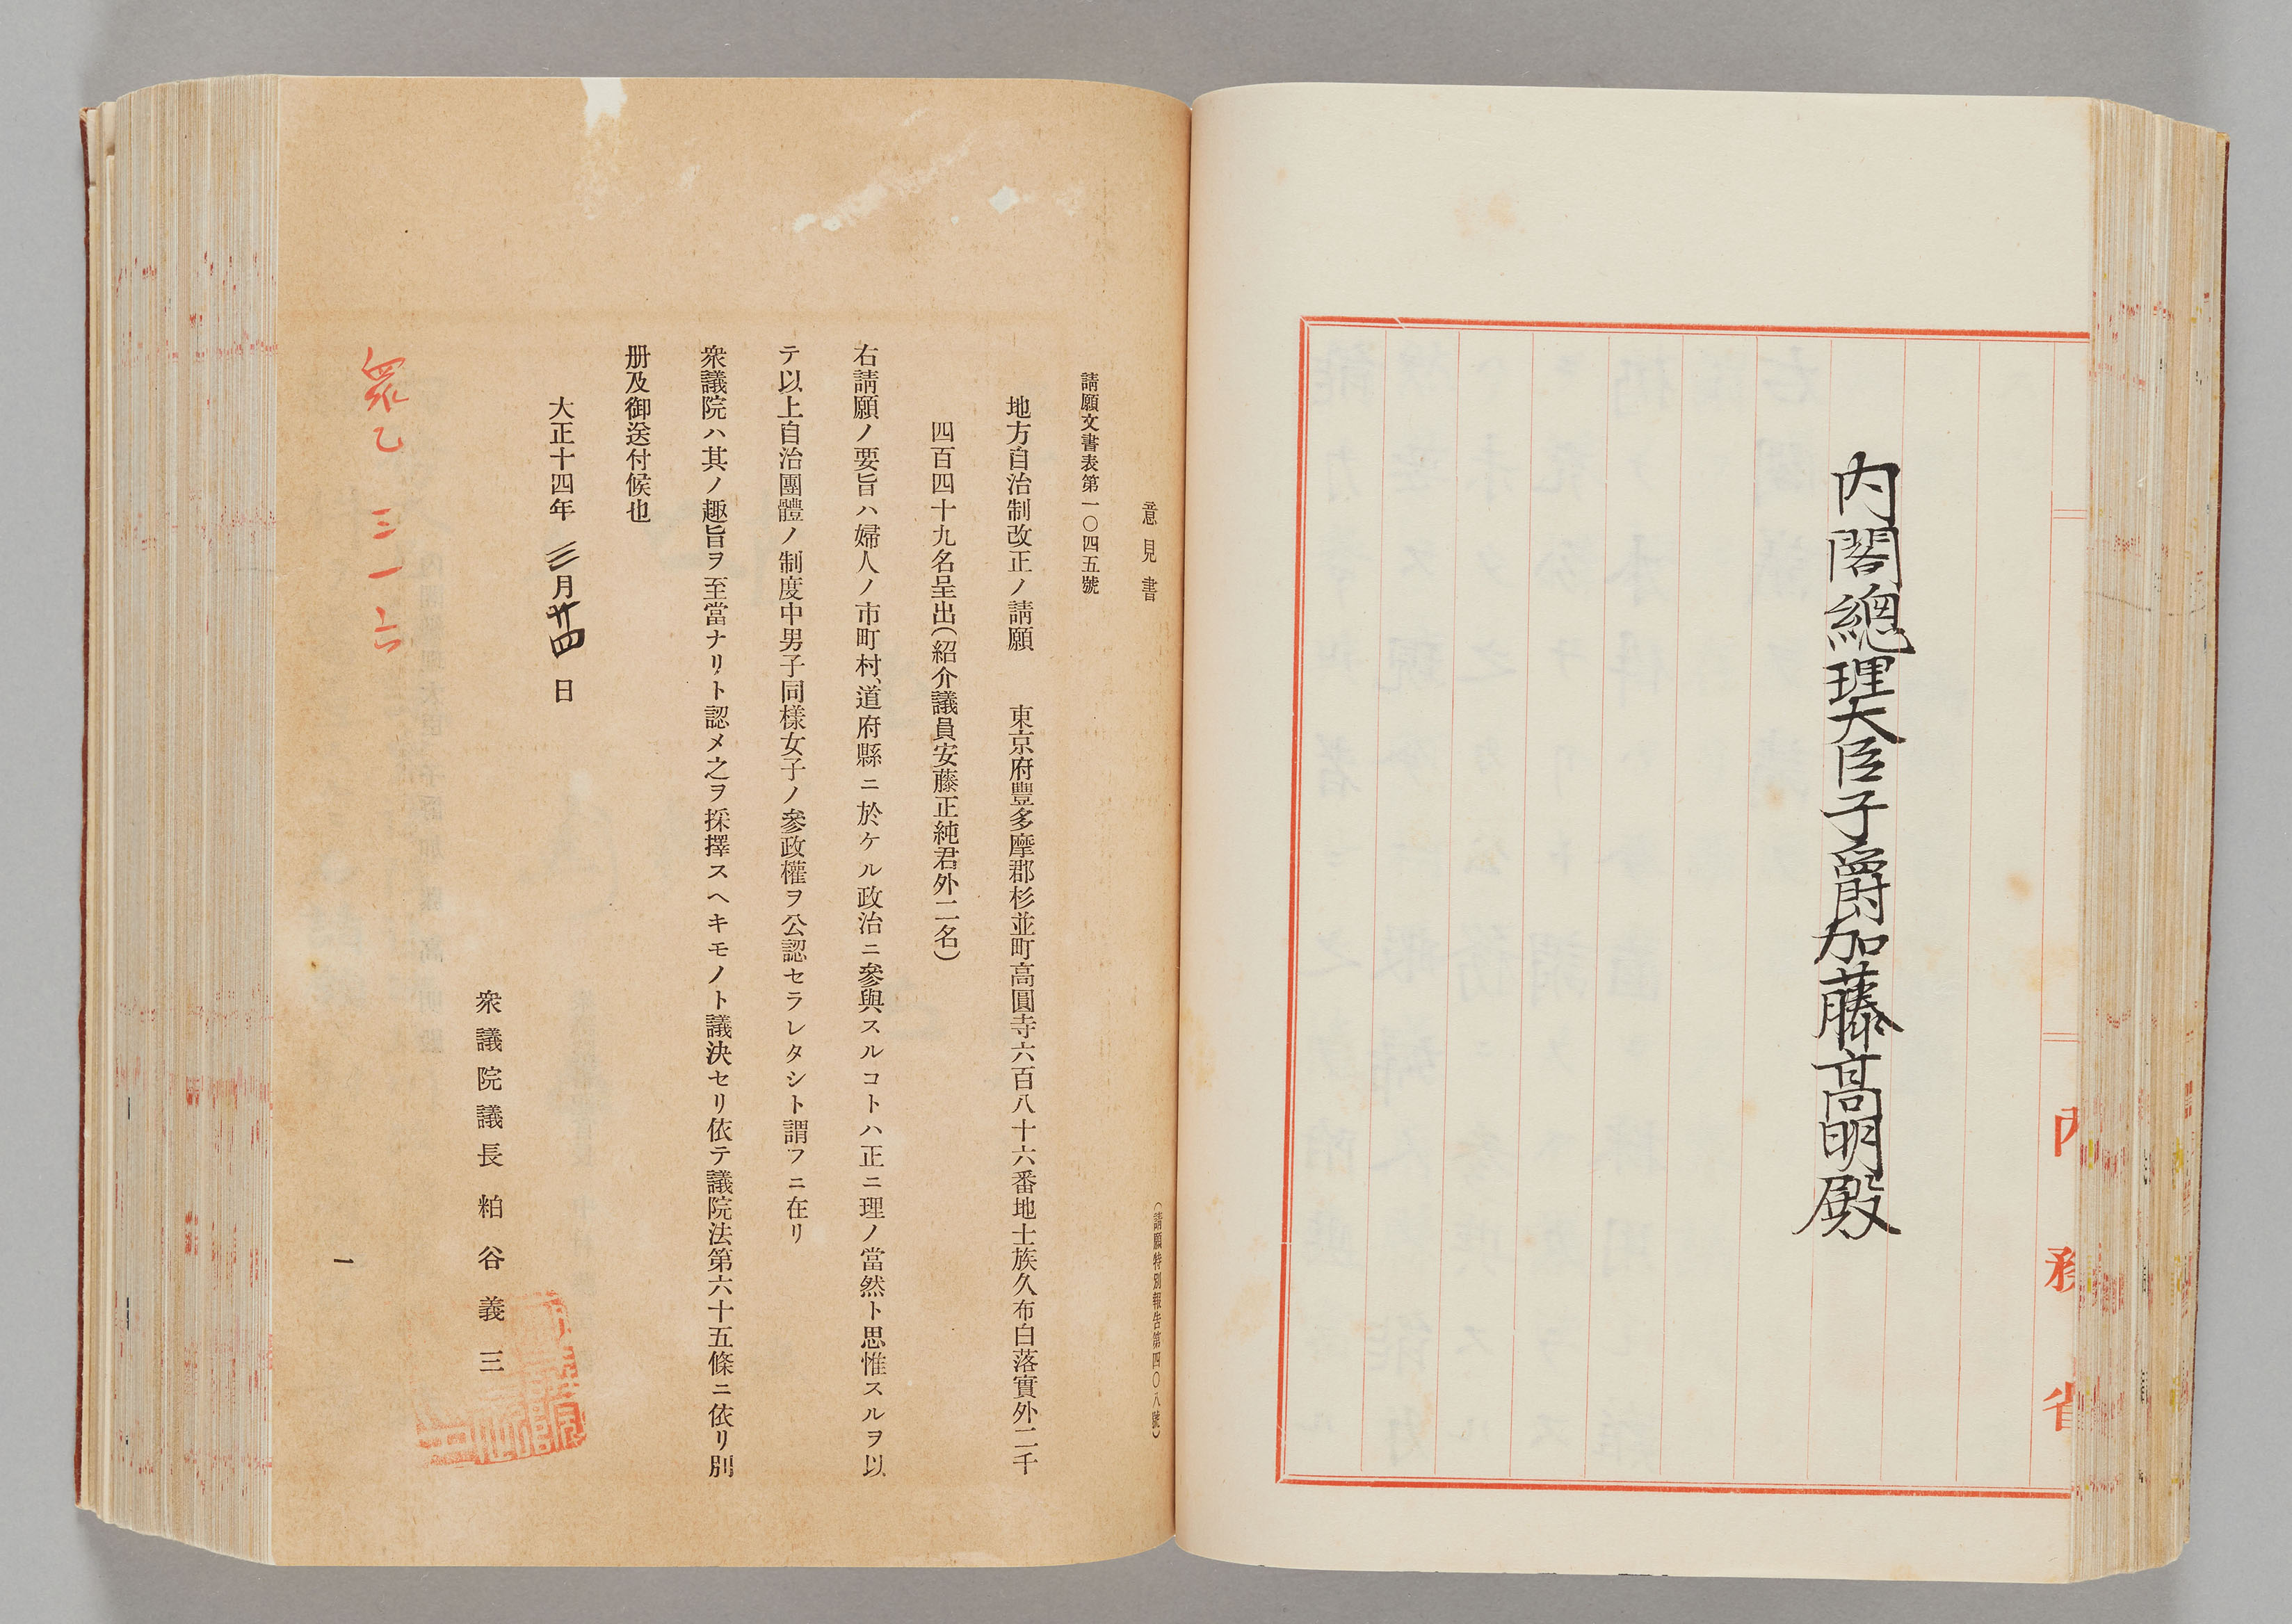 内閣總理大臣子爵加藤高明殿
内務省
意見書
(請願特別報告第四〇八號)
請願文書表第一〇四五號
地方自治制改正ノ請願 東京府豐多摩郡杉並町高圓寺六百八十六番地士族久布白落實外二千
四百四十九名呈出(紹介議員安藤正純君外二名)
右請願ノ要旨ハ婦人ノ市町村、道府縣ニ於ケル政治ニ參與スルコトハ正ニ理ノ當然ト思惟スルヲ以
テ以上自治團體ノ制度中男子同樣女子ノ參政權ヲ公認セラレタシト謂フニ在リ
衆議院ハ其ノ趣旨ヲ至當ナリト認メ之ヲ採擇スヘキモノト議決セリ依テ議院法第六十五條ニ依リ別
册及御送付候也
大正十四年三月廿四日
衆議院議長 粕谷義三
衆乙 三一六
一